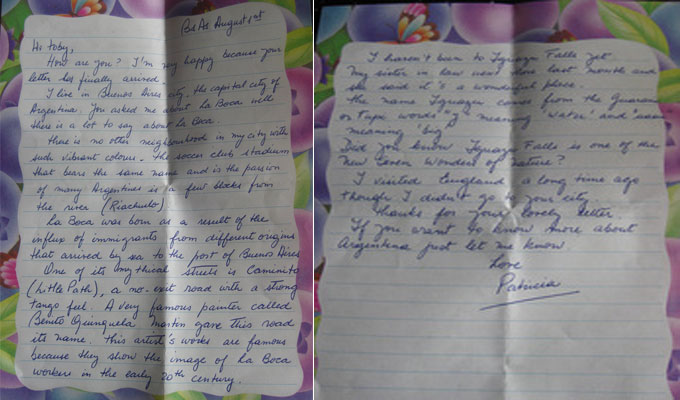 Bs As August 1st
Hi Toby,
How are you? I'm very happy because your
letter has finally arrived.
I live in Buenos Aires city, the capital city of
Argentina. You asked me about La Boca well
there is a lot to say about La Boca.
There is no other neighbourhood in my city with
such vibrant colours. The soccer club stadium
that bears the same name and is the passion
of many Argentines is a few blocks from
the river (Riachuelo)
La Boca was born as a result of the
influx of immigrants from different origins
that arrived by sea to the port of Buenos Aires
One of its mythical streets is Caminito
(Little Path), a no-exit road with a strong
tango feel. A very famous painter called
Benito Quinquela Martin gave this road
its name. This artist's works are famous
because they show the image of La Boca
workers in the early 20th century.
I haven't been to Iguazu Falls yet.
My sister in law went there last month and
she said it's a wonderful place.
The name Iguazu comes from the Guarani
or Tupi words "y" meaning 'water' and
meaning 'big'.
Did you know Iguazu Falls is one of the
new seven wonders of nature?
I visited England a long time ago
though I didn't go to your city.
Thanks for your lovely letter.
If you want to know more about
Argentina just let me know.
Love
Patricia